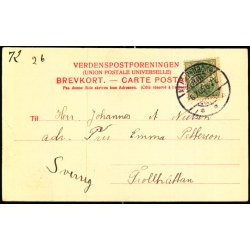 72 26
VERDENSPOSTFORENINGEN
(UNION POSTALE UNIVERSELLE)
BREVKORT. — CARTE POSTALE
Paa denne Side skrives kun Adressen. (Côté réservé à
Til Herr Johannes A Nielsen
adr. Emma Petterson
Sverrig
Trollhättan